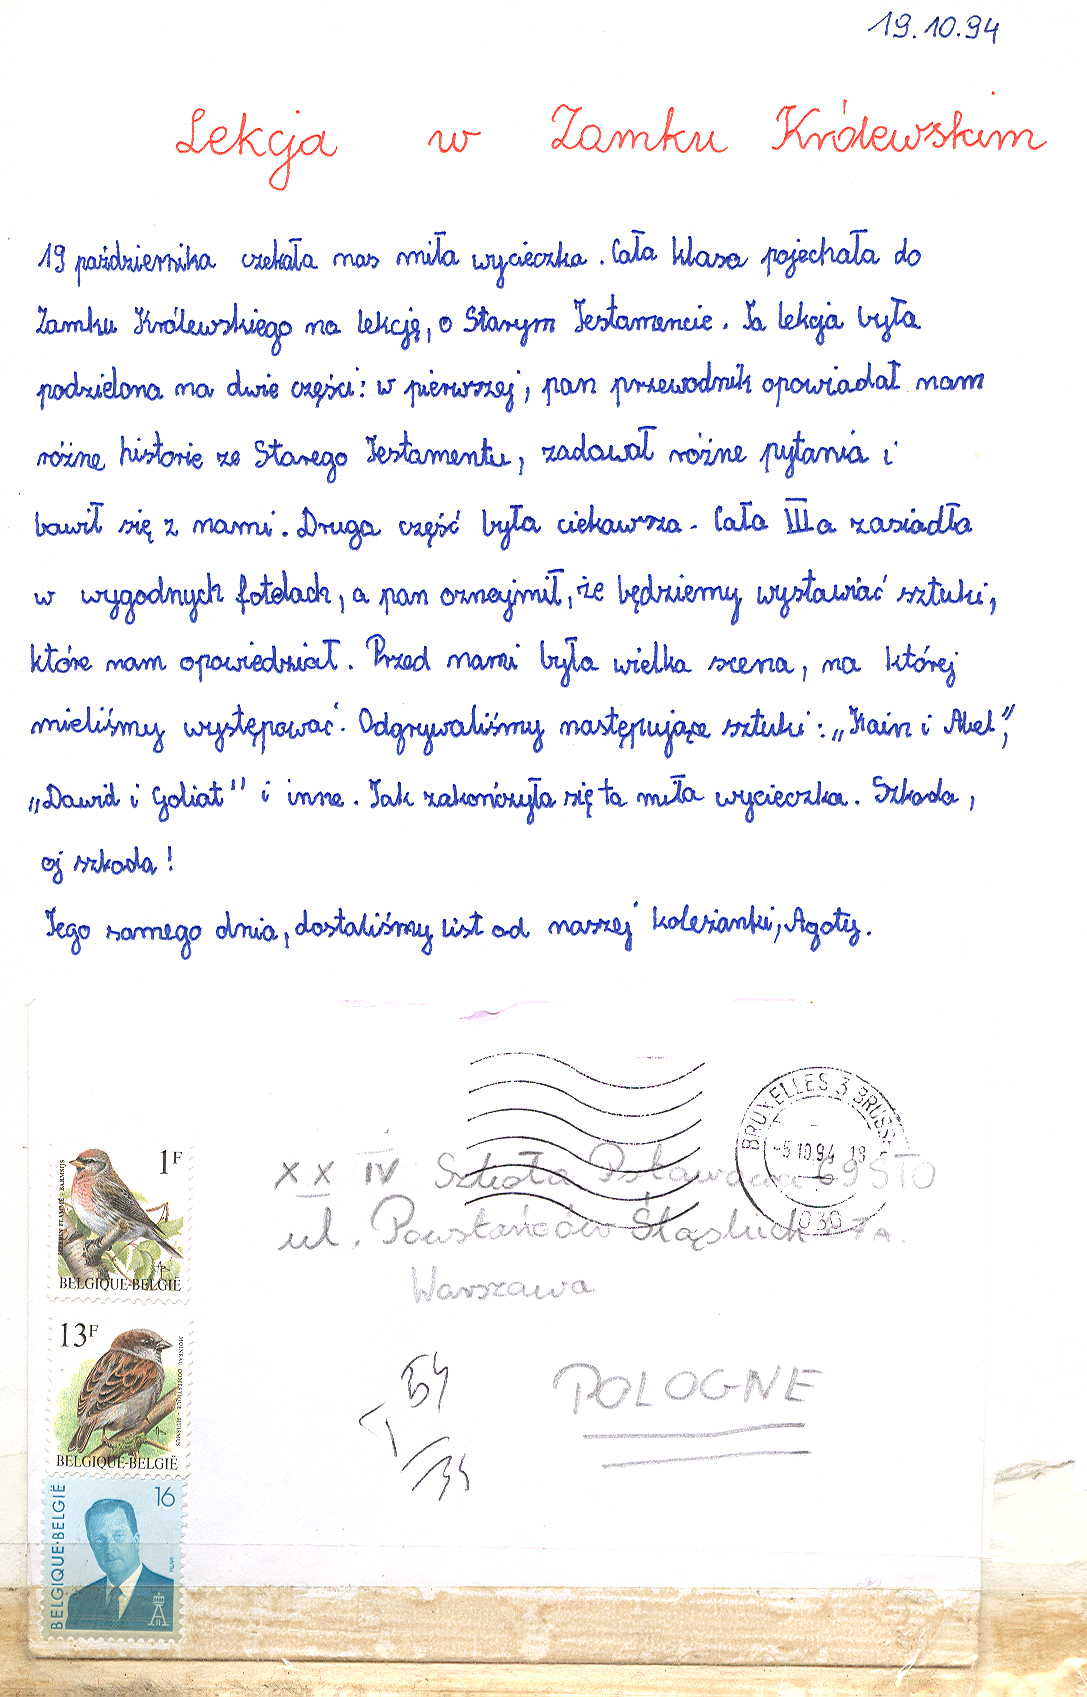 19.10.94
Lekcja w Zamku Królewskim
19 października czekała nas miła wycieczka. Cała klasa pojechała do
Zamku Królewskiego na lekcję, o Starym Testamencie. Ta lekcja była
podzielona na dwie części: w pierwszej, pan przewodnik opowiadał nam
różne historie ze Starego Testamentu, zadawał różne pytania i
bawił się z nami. Druga część była ciekawsza. Cała III a zasiadła
w wygodnych fotelach, a pan oznajmił, że będziemy wystawiać sztuki,
które nam opowiedział. Przed nami była wielka scena, na której
mieliśmy występować. Odgrywaliśmy następujące sztuki: „Kain i Abel",
„Dawid i Goliat" i inne. Tak zakończyła się ta miła wycieczka. Szkoda,
oj szkoda!
Tego samego dnia, dostaliśmy list od naszej koleżanki, Agaty.
BRUXELLES 3 BRUSS
-5.10.94 19
1030
XXIV Szkoła Pstawowa 69 STO
ul. Powstańców Śląskich 7A.
Warszawa
POLOGNE
T 54
/34
1F
BELGIQUE-BELGIË
13F
MOINEAU DOMESTIQUE - HUISMUS
BELGIQUE-BELGIË
16
BELGIQUE-BELGIË